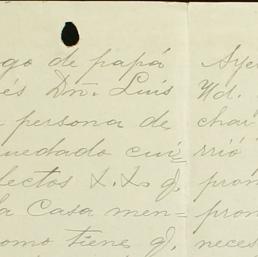 go de papá
és Dn. Luis
persona de
quedado cui=
efectos &. &. q.
la Casa men=
como tiene q.
Aye
Vd.
char
rrió
pron
pron
neces